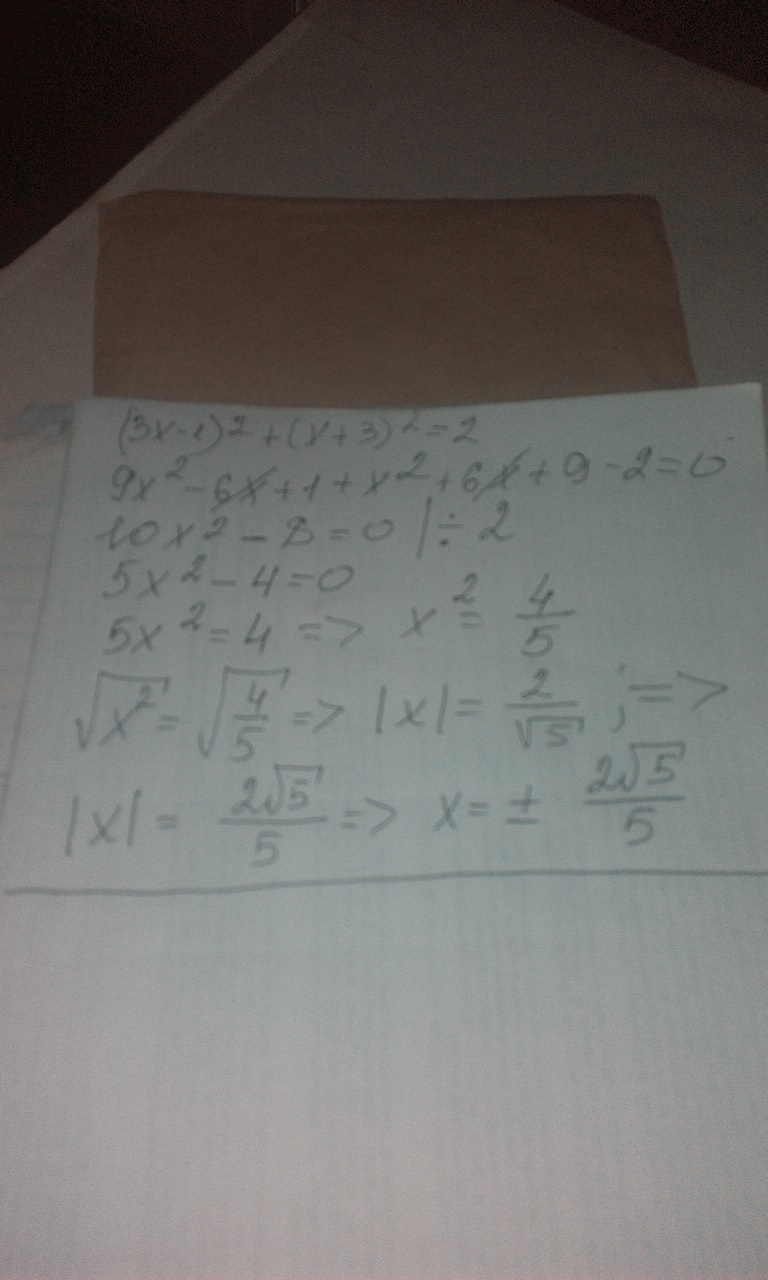 (3x-1)² + (x+3)² = 2
9x² - 6x + 1 + x² + 6x + 9 - 2 = 0
10x² - 8 = 0 | ÷ 2
5x² - 4 = 0
5x² = 4 => x² = 4/5
√x² = √4/5 => |x| = 2/√5 ; =>
|x| = 2√5/5 => x = ± 2√5/5